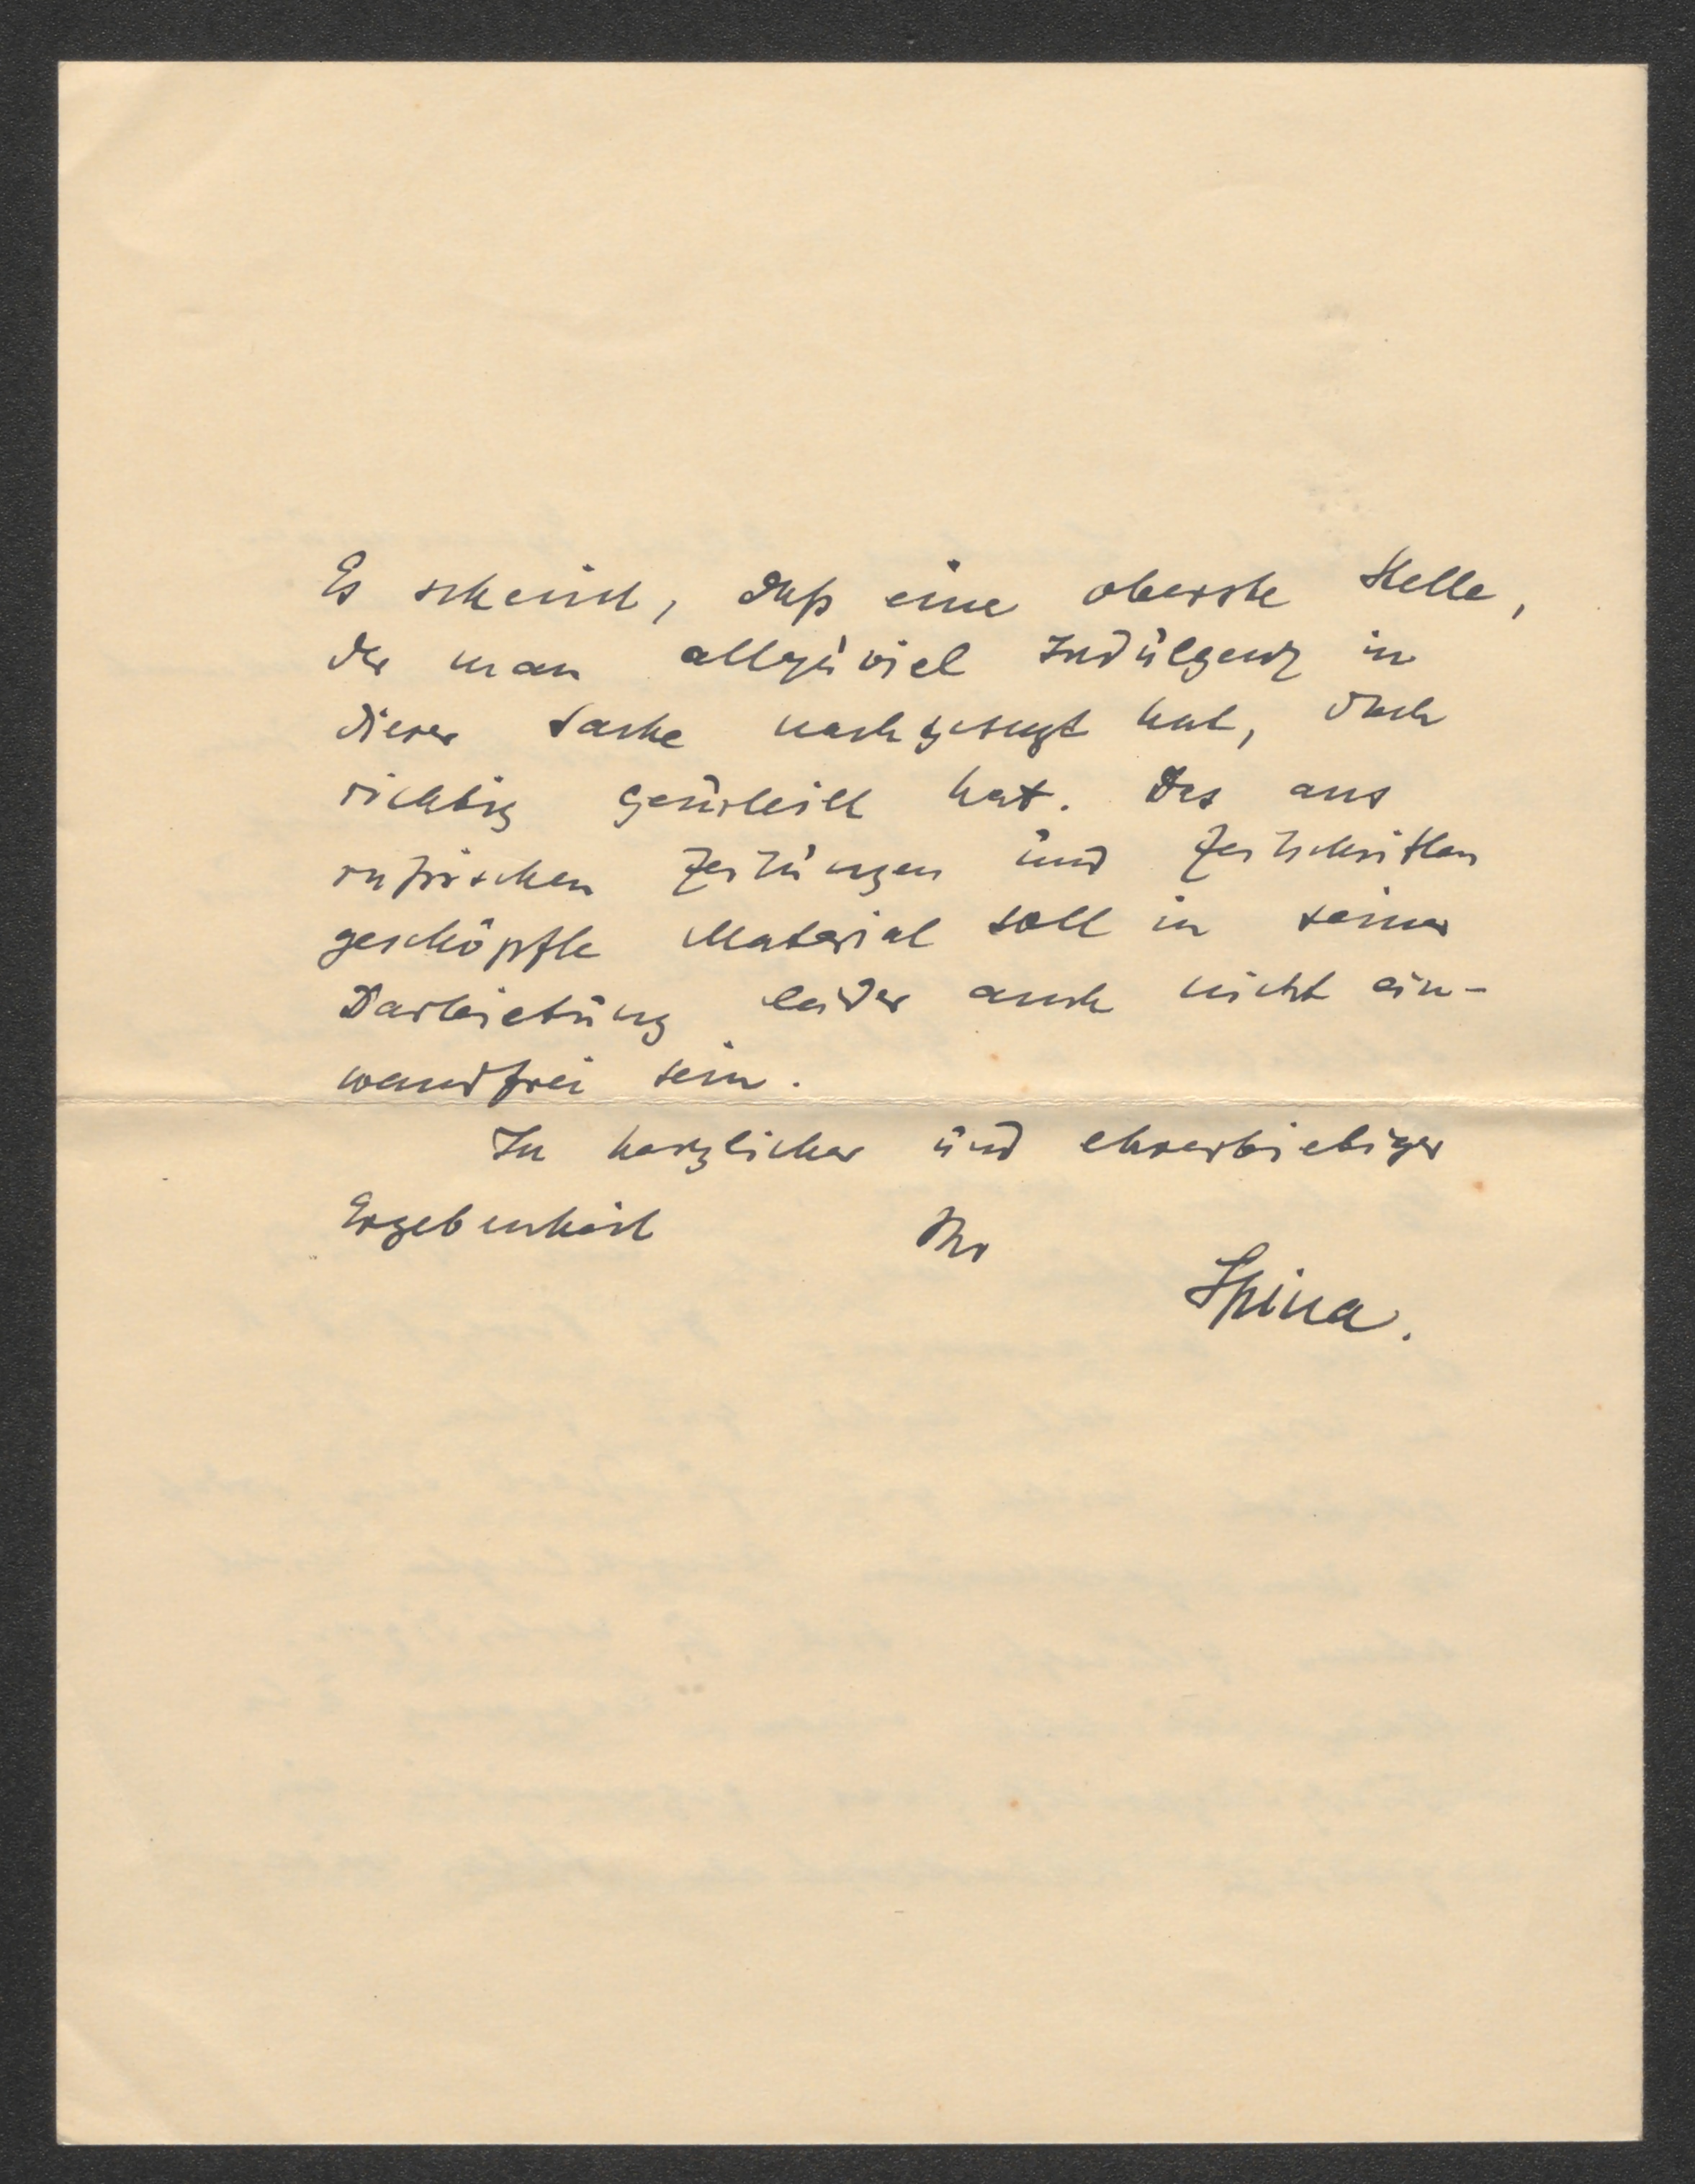 Es scheint, daß eine oberste Stelle,
der man allzuviel Indulgenz in
dieser Sache nachgesagt hat, doch
richtig geurteilt hat. Das aus
russischen Zeitungen und Zeitschriften
geschöpfte Material soll in seiner
Darbietung leider auch nicht ein-
wandfrei sein.
In herzlicher und ehrerbietiger
Ergebenheit Ihr
Spina.